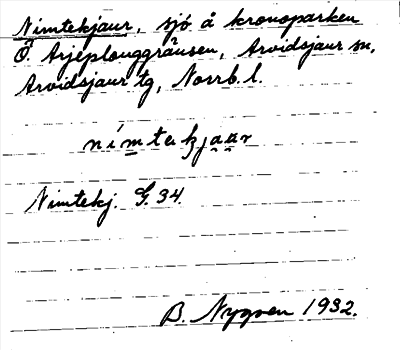 Nimtekjaur, sjö å kronoparken
Ö. Arjeplouggränsen, Arvidsjaur sn,
Arvidsjaur tg, Norrb. l.
nímtekjaar
Nimtekj. G.34
B. Nygren 1932.